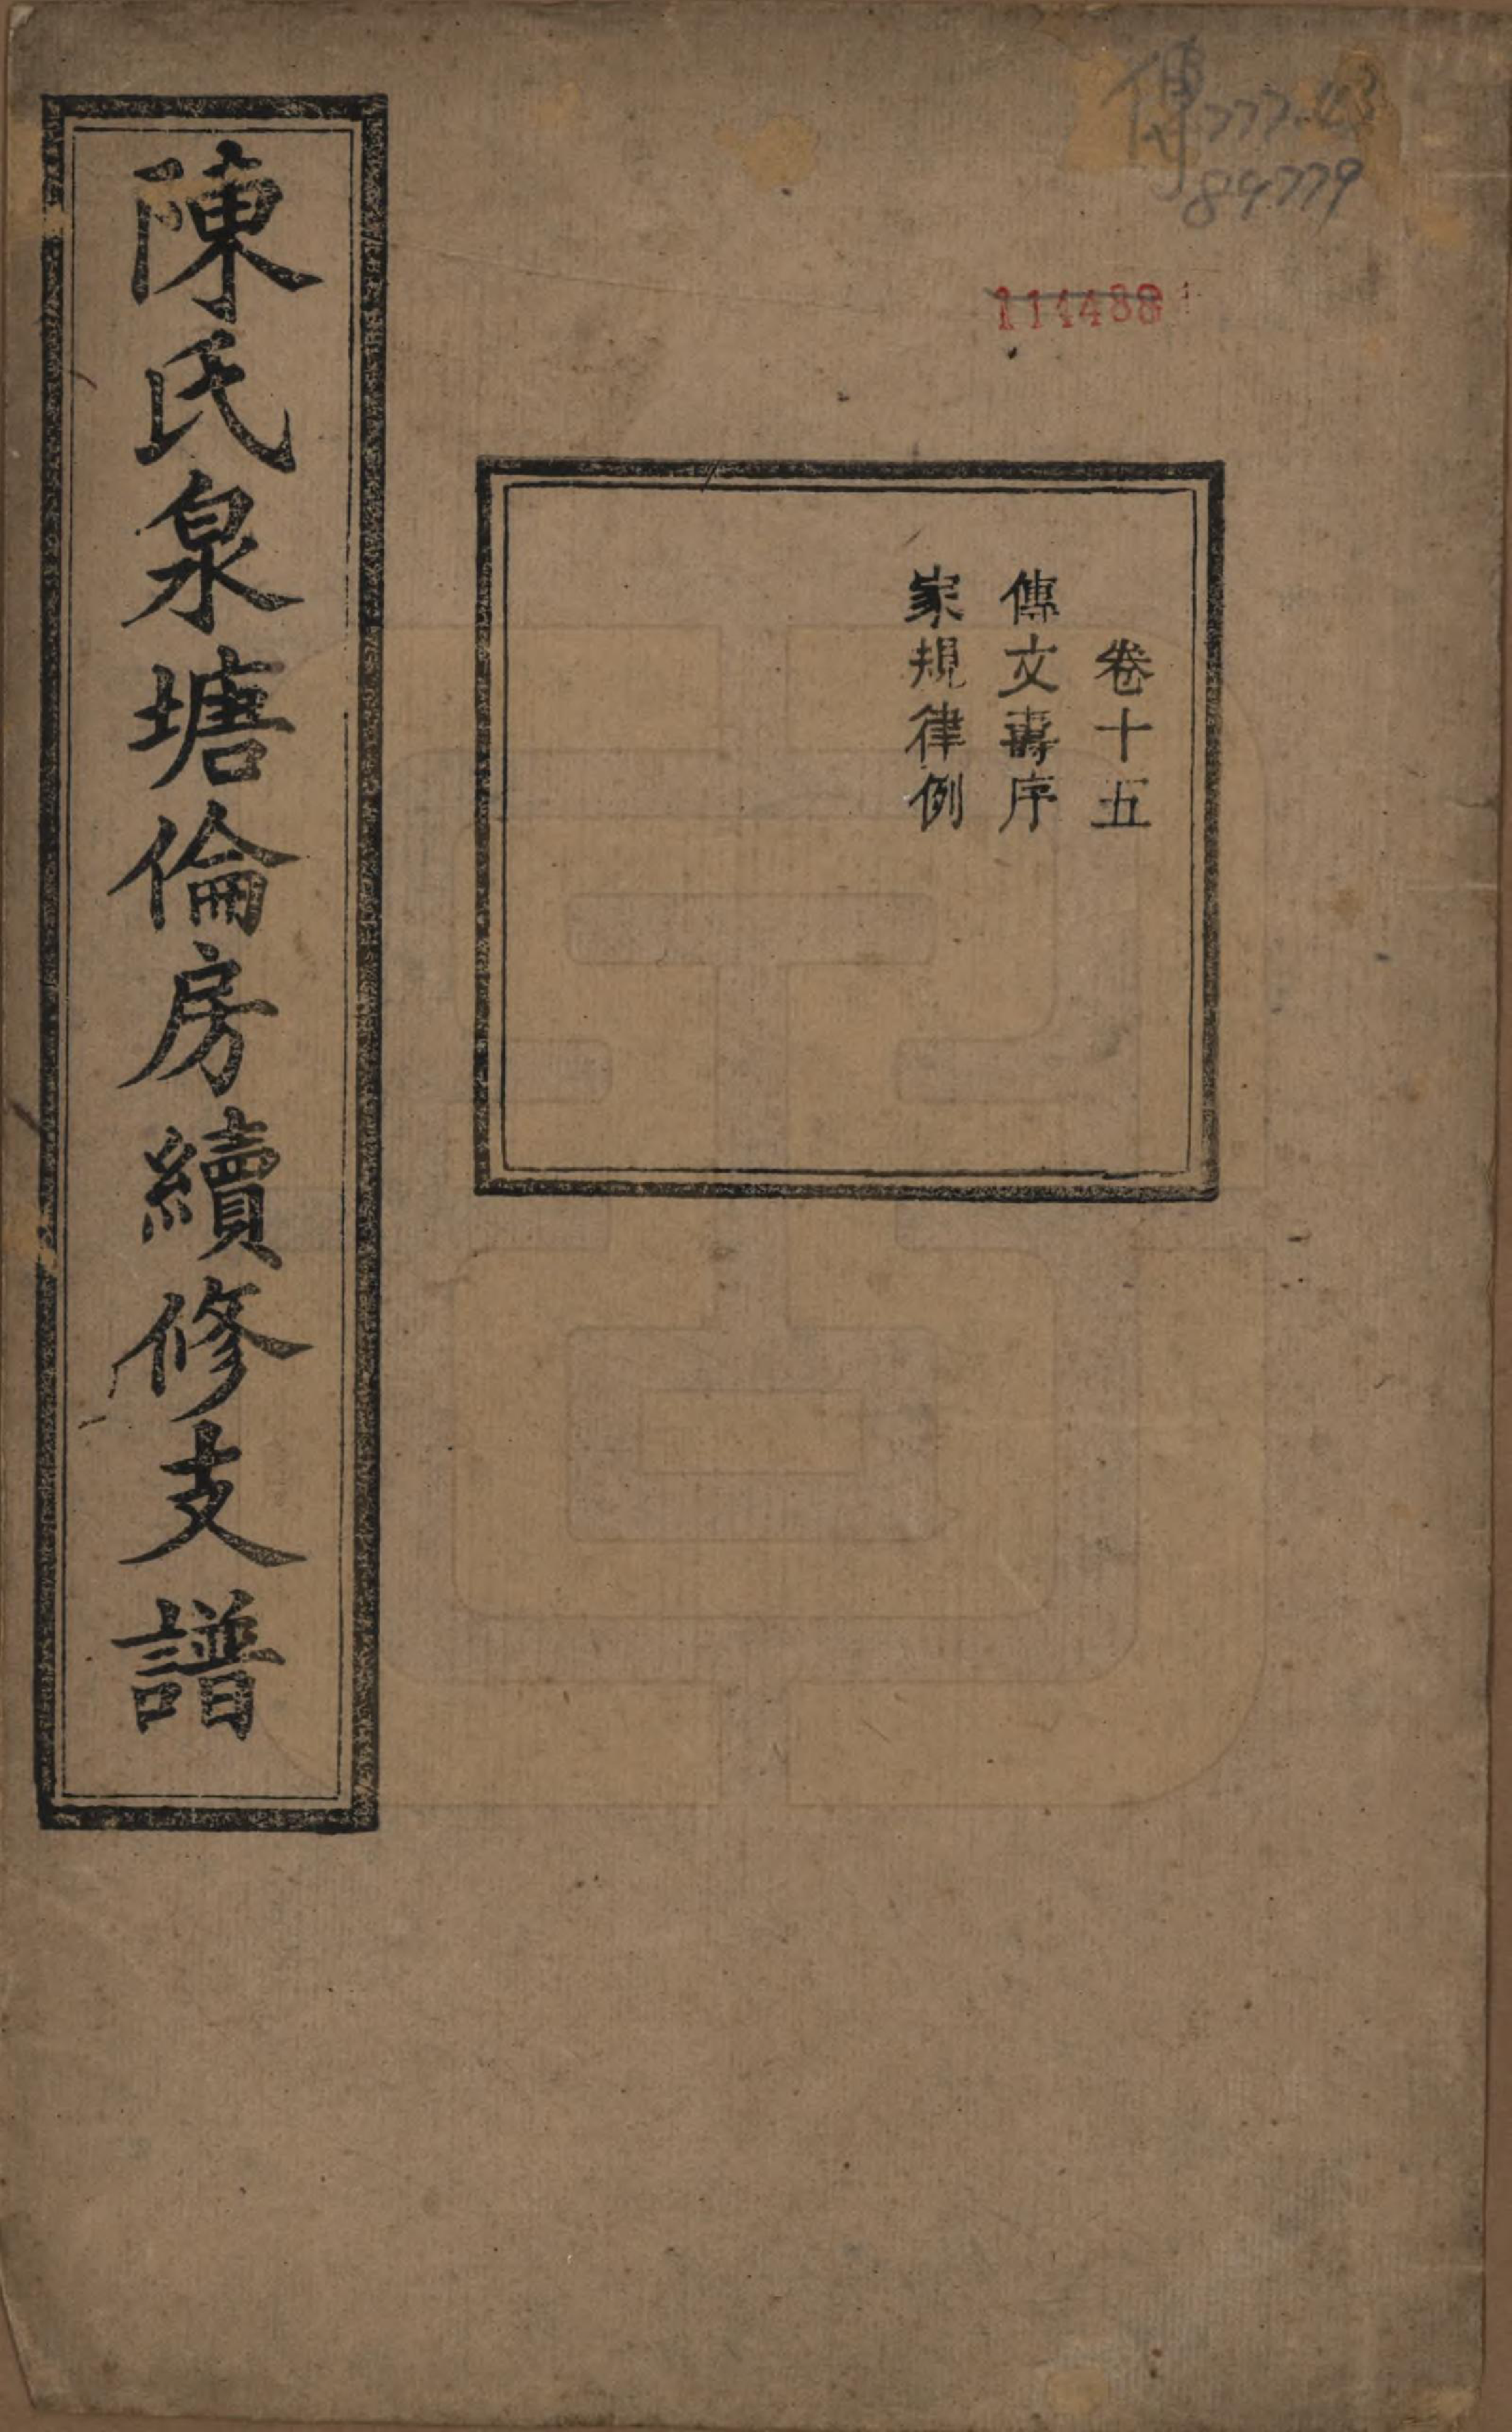 傳777.43
84779
114488
卷十五
傳文壽序
家規律例
陳氏泉塘倫房續修支譜